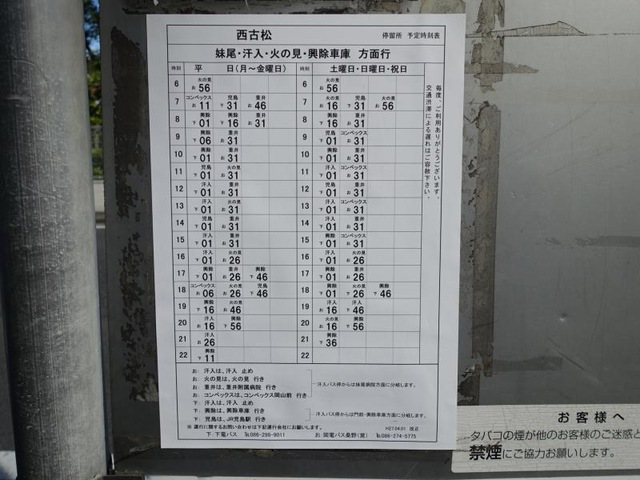 西古松
停留所 予定時刻表
妹尾・汗入・火の見・興除車庫 方面行
時刻 平 日（月～金曜日） 時刻 土曜日・日曜日・祝日
6 火の見 お56 6 火の見 お56
7 コンベックス お11 児島 下31 重井 お46 7 火の見 お16 児島 下31 火の見 お56
8 興除 下01 興除 下16 重井 お31 8 興除 下16 重井 お31
9 興除 下06 重井 お31 9 興除 下01 コンベックス お31
10 興除 下01 重井 お31 10 興除 下01 重井 お31
11 汗入 下01 重井 お31 11 汗入 下01 コンベックス お31
12 汗入 下01 重井 お31 12 児島 下01 重井 お31
13 汗入 下01 重井 お31 13 汗入 下01 コンベックス お31
14 汗入 下01 重井 お31 14 興除 下01 重井 お31
15 汗入 下01 重井 お31 15 興除 下01 コンベックス お31
16 汗入 下01 火の見 お26 16 汗入 下01 火の見 お26
17 興除 下01 重井 お26 興除 下46 17 興除 下01 重井 お26
18 コンベックス お06 重井 お26 児島 下46 18 興除 下01 火の見 お26 興除 下46
19 興除 下16 火の見 お46 19 汗入 下16 汗入 お46
20 汗入 お16 興除 下56 20 火の見 お16 興除 下56
21 汗入 お26 21 興除 下36
22 興除 下11 22
毎度、ご利用ありがとうございます
交通渋滞による遅れはご容赦下さい。
お：汗入は、汗入 止め
お：火の見は、火の見 行き
お：重井は、重井附属病院 行き
お：コンベックスは、コンベックス岡山前 行き
―汗入バス停からは妹尾病院方面に分岐します。
下：汗入は、汗入 止め
下：興除は、興除車庫 行き
下：児島は、JR児島駅 行き
―汗入バス停からは門前・興除車庫方面に分岐します。
※ 運行に関するお問い合わせは下記運行会社にお願いします。
H27.04.01 改正
下：下電バス ℡086-298-9011 お：岡電バス桑野（営） ℡086-274-5775
お客様へ
タバコの煙が他のお客様のご迷惑と
禁煙にご協力お願いします。